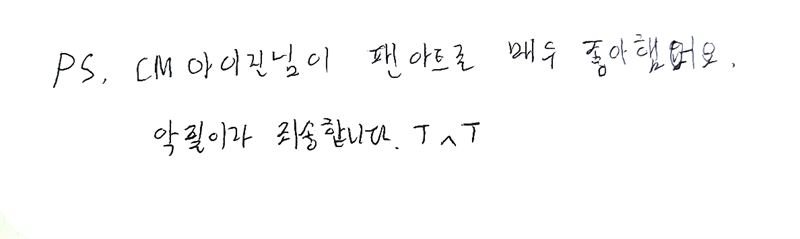 PS. CM아이린님이 팬아트로 매우 좋아했어요.
악필이라 죄송합니다. T^T